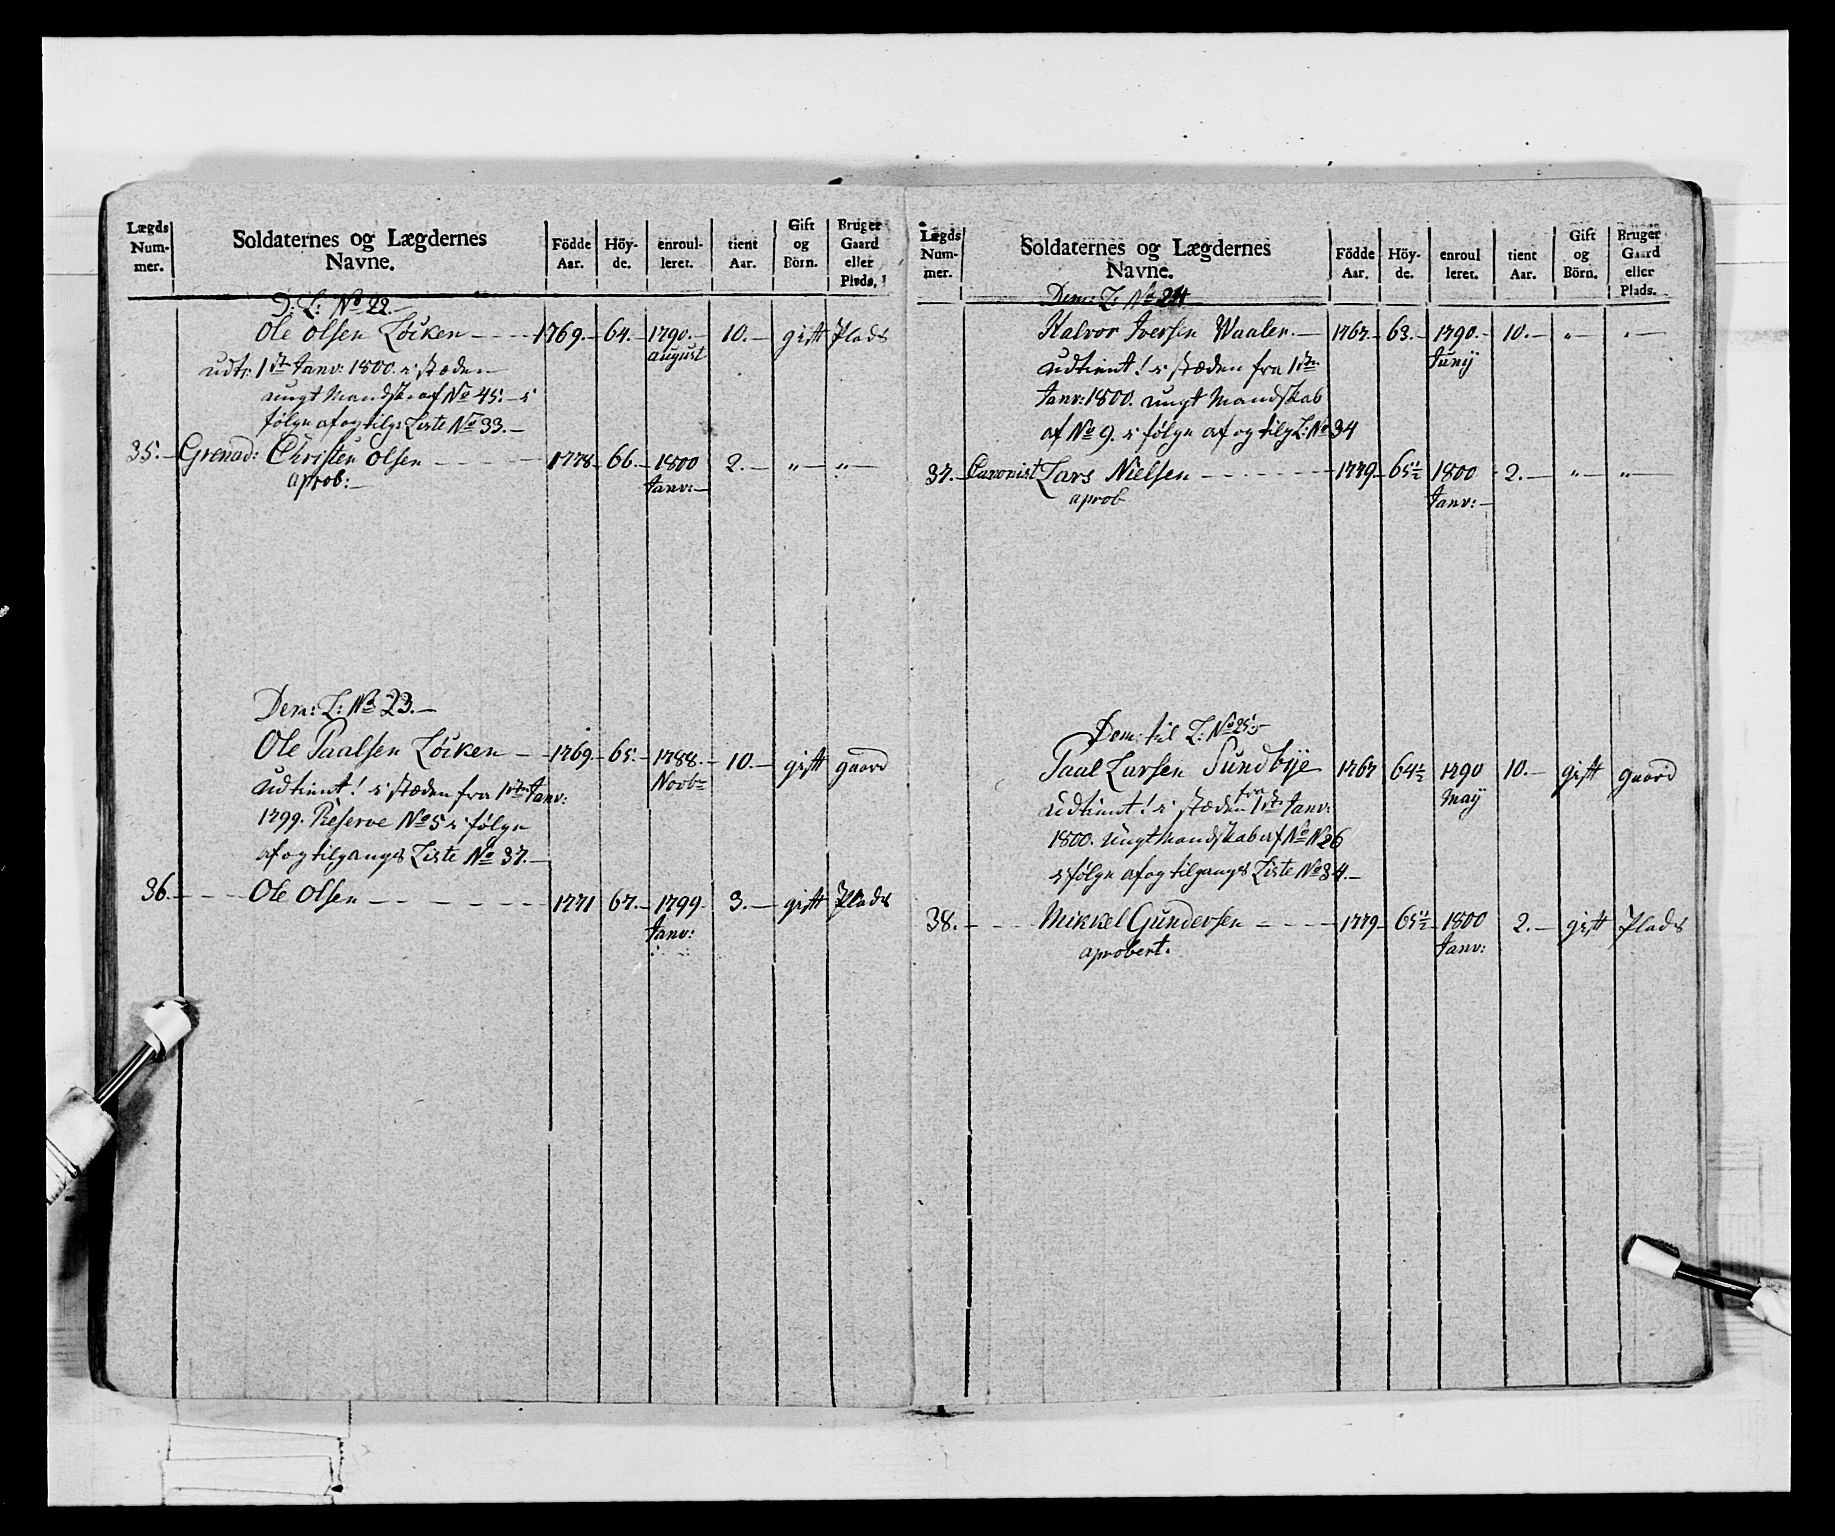 Lægds Num-mer. | Soldaternes og Lægdernes Navne. | Födde Aar. | Höy-de. | enroul-leret. | tient Aar. | Gift og Börn. | Bruger Gaard eller Plads.
D: L: No 22.
Ole Olsen Löcken — 1769. 64. 1790. 10. gift Plads
august
udt: 1ste Janv: 1800. i stæden
ungt Mandsk: af No 45. — i
følge af og tilg: Liste No 33. —
35. Grenad: Christen Olsen — 1778. 66. 1800 2. — „ — „ —
aprob: — Janv: —
Dem: L: No 23. —
Ole Paalsen Löcken — 1769. 65. 1788. 10. — gift gaard
Novbr
udtient! i stæden fra 1ste Janv:
1799. Reserve No 5 i følge
af og tilgangs Liste No 37. —
36. — Ole Olsen — 1771 67. 1799 3. — gift Plads
Janv:
Lægds Num-mer. | Soldaternes og Lægdernes Navne. | Födde Aar. | Höy-de. | enroul leret. | tient Aar. | Gift og Börn. | Bruger Gaard eller Plads.
Dem: L: No 24
Halvor Iversen Waaler. — 1767. 63. 1790. 10. — „ — „ —
Junij
udtient! i stæden fra 1ste
Janv: 1800. ungt Mandskab
af No 9. i følge af og tilg L: No 34
37. Lars Nielsen — 1779. 65½ 1800 2. — „ — „ —
aprob Janv: —
Dem: til L: No 25
Paal Larsen Sundbye 1767 64½ 1790 10. — gift gaard
Maij
udtient! i stæden fra 1ste Janv:
1800. ungt Mandskab af No 26
i følge af og tilgangs Liste No 34. —
38. — Mikkel Gundersen — 1779 65½ 1800 2. — gift Plads
aprobert. Janv: